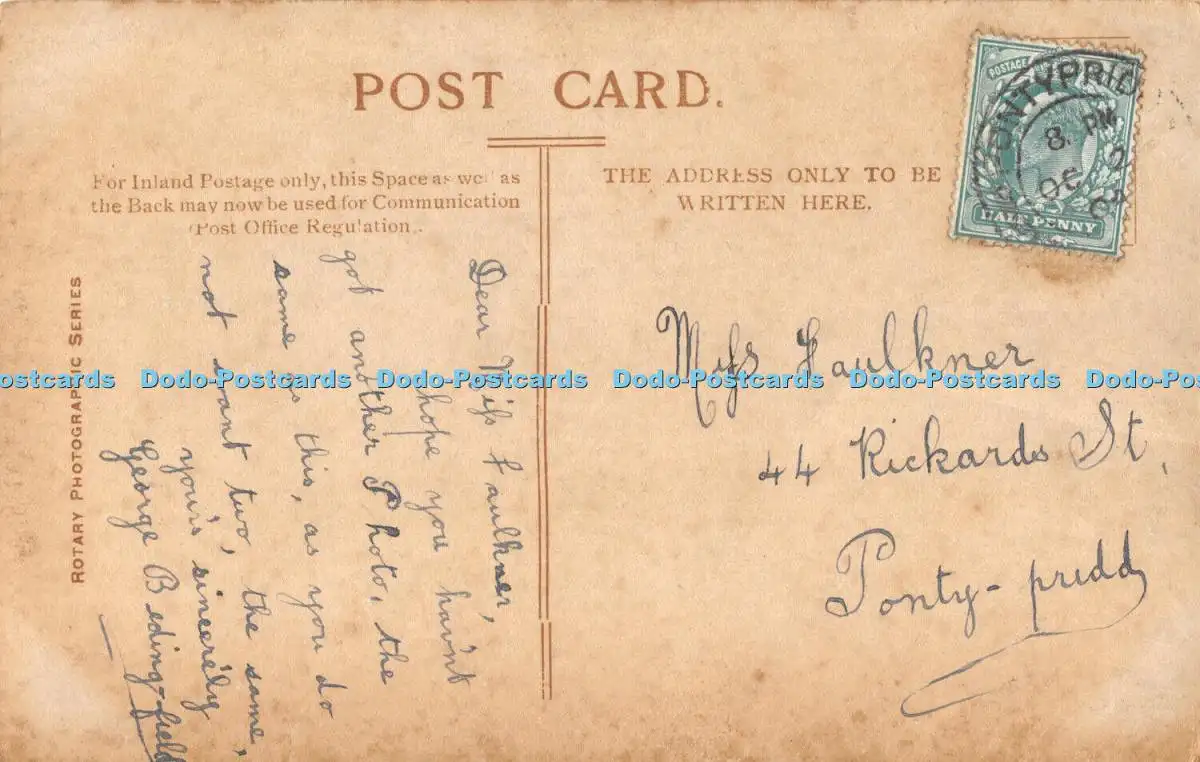 POST CARD.
For Inland Postage only, this Space as well as
the Back may now be used for Communication
(Post Office Regulation).
THE ADDRESS ONLY TO BE
WRITTEN HERE.
POSTAGE
HALFPENNY
PONTYPRIDD
8 PM
OC 2
ROTARY PHOTOGRAPHIC SERIES
Dear Miss Faulkner,
hope you hav'nt
got another Photo, the
same as this, as you do
not want two, the same,
your's sincerely
George Beding-field
Miss Faulkner
44 Rickards St,
Ponty-pridd
Dodo-Postcards Dodo-Postcards Dodo-Postcards Dodo-Postcards